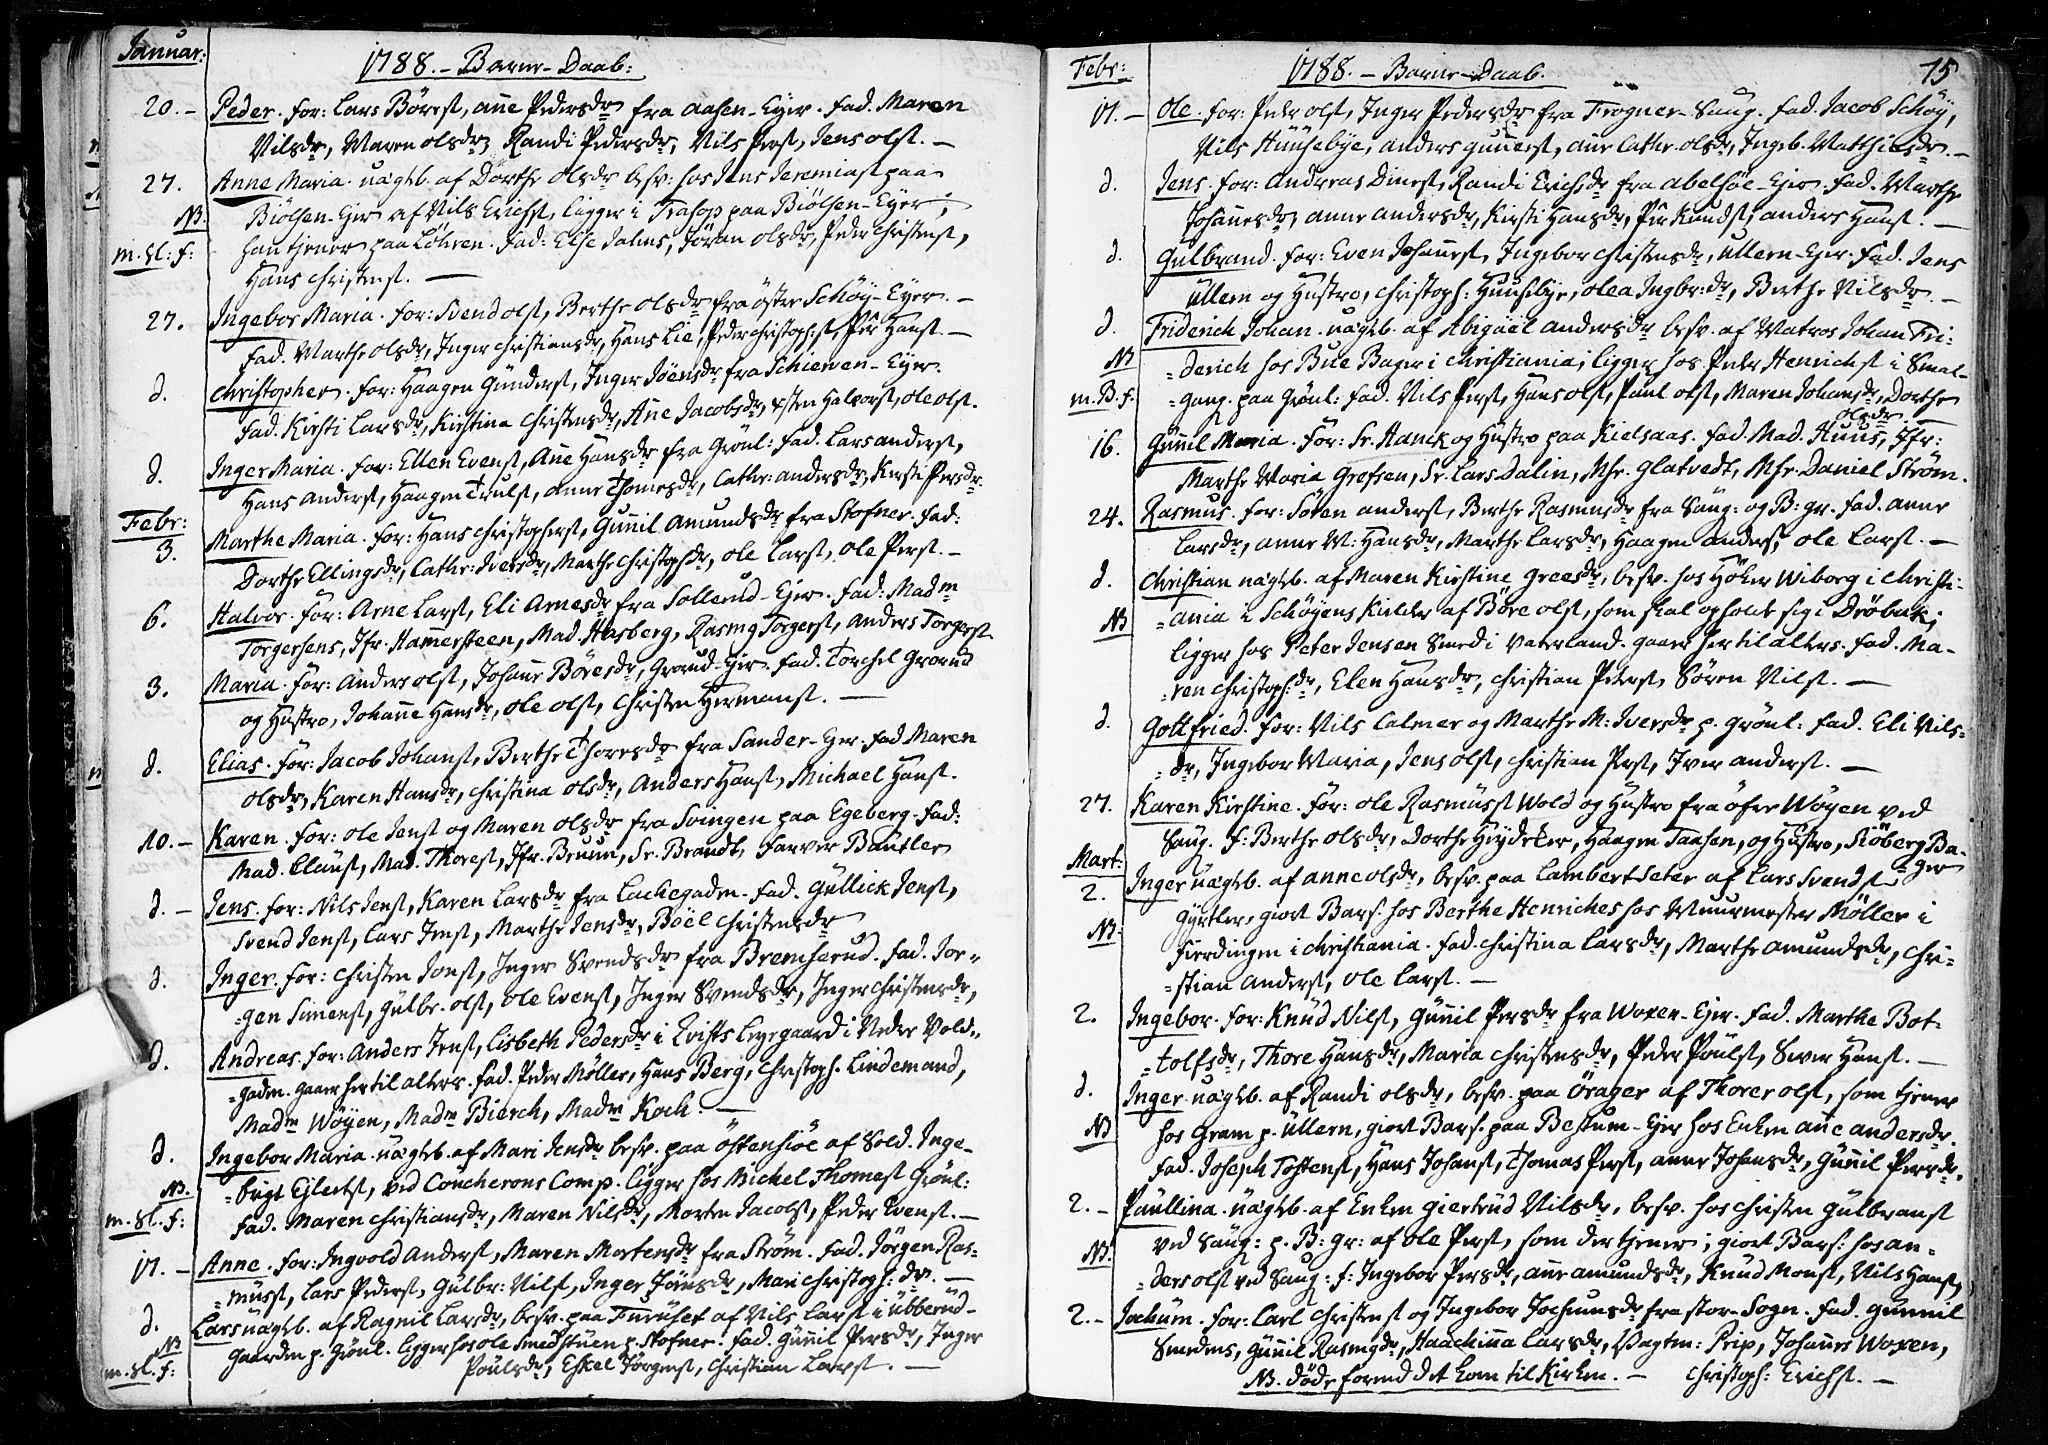 Januar:
1788. - Barne-Daab:
20. - Peder. for: Lars Börest, Añe Pedersdr fra Aasen-Eyer. fad. Maren
Nilsdr, Maren Olsdr, Randi Pedersdr, Nils Perst, Jens Olst. -
27. Anne Maria. uægtb. af Dorthe Olsdr besv: hos Jens Jeremiast paa
NB. Biölsen-Eyer af Nils Erichst, ligger i Trasop paa Biölsen-Eyer;
m. sl: f: han tjener paa Löhren. fad: Else Jalms, Jöran Olsdr, Peder Christenst,
Hans Christenst. -
27. Ingebor Maria. for: Svend Olst, Berthe Olsdr fra östre Schöy-Eyer. -
fad. Marthe Olsdr, Inger Christiansdr, Hans Lie, Peder Christophst, Pêr Hanst. -
d. Christopher. for: Haagen Gunderst, Inger Jöensdr fra Schieven-Eyer.
fad. Kirsti Larsdr, Kirstina Christensdr, Añe Jacobsdr, Esten Halvorst, Ole Olst.
d. Inger Maria. for: Ellen Evenst, Añe Hansdr fra Grönl: fad. Lars Anderst,
Hans Anderst, Haagen Trulst, Anne Thomesdr, Cathr. Andersdr, Kirsti Persdr.
Febr:
3. Marthe Maria. for: Hans Christopherst, Guñil Amundsdr fra Stofner. fad:
Dorthe Ellingsdr, Cathr: Iversdr, Marthe Christophdr, Ole Larst, Ole Perst. -
6. Halvor. for: Arne Larst, Eli Arnesdr fra Sollerud-Eyer. fad: Madm
Torgersens, Jfr. Hamersteen, Mad. Hasberg, Rasmg Torgerst, Anders Torgerst.
3. Maria. for: Anders Olst, Johañe Böresdr, Grorud-Eyer. fad. Torchel Grorud
og Hustro, Johañe Hansdr, Ole Olst, Christen Hermanst. -
d. Elias. for: Jacob Johanst, Berthe Thoresdr fra Sander-Eyer. fad Maren
Olsdr, Karen Hansdr, Christina Olsdr, Anders Hanst, Michael Hanst.
10. - Karen. for: Ole Jenst og Maren Olsdr fra Svingen paa Egeberg. fad:
Mad. Claust, Mad. Thorest, Jfr. Bruun, Sr. Brandt, Farver Bautler
d. - Jens. for: Nils Jenst, Karen Larsdr fra Lackegaden. fad. Gullick Jenst,
Svend Jenst, Lars Jenst, Marthe Jensdr, Böel Christensdr
d. Inger. for: Christen Jonst, Inger Svendsdr fra Bremserud. fad. Jör-
-gen Simenst, Gulbr. Olst, Ole Evenst, Inger Svendsdr, Inger Christensdr,
d. Andreas. for: Anders Jenst, Lisbeth Pedersdr i Qvists Leyegaard i Neder Vold-
-gaden. gaaer her til alters. fad. Peder Möller, Hans Berg, Christoph. Lindemand,
Madm Wöyen, Madm Bierch, Madm Koch. -
d. Ingebor Maria. uægtb. af Mari Jensdr besv. paa Östensiöe af Sold. Inge-
NB. -brigt Ejlertst, ved Coucherons Comp. ligger hos Michel Thomest Grönl:
m. sl. f: fad. Maren Christiansdr, Maren Nilsdr, Morten Jacobst, Peder Evenst. -
17. - Anne. for: Ingvold Anderst, Maren Mortensdr fra Ström. fad. Jörgen Ras-
-must, Lars Pederst, Gulbr: Nilst, Inger Jörnsdr, Mari Christoph: dr. -
d. Lars uægtb. af Ragnil Larsdr, besv. paa Furuset af Nils Larst i Ubberud-
NB gaarden p. Grönl. ligger hos Ole Smedstuen p. Stofner. fad. Guñil Persdr, Inger
m. sl. f: Poulsdr, Eskel Jörgenst, Christian Larst. -
Febr:
1788. - Barne-Daab.
15
17. - Ole. for: Peder Olst, Inger Pedersdr fra Frogner-Saug. fad. Jacob Schöy,
Nils Huusebye, Anders Guñerst, Añe Cathr. Olsdr, Ingeb. Matthiesdr. -
d. Jens. for: Andreas Dinest, Randi Erichsdr fra Abelsöe-Eyer. fad. Marthe
Johañesdr, Anne Andersdr, Kirsti Hansdr, Pêr Knudst, Anders Hanst. -
d. Gulbrand. for: Even Johañest, Ingebor Christensdr, Ullern-Eyer. fad. Jens
Ullern og Hustro, Christoph: Huusebye, Olea Ingbr: dr, Berthe Nilsdr. -
d. Friderich Johan. uægtb. af Abigael Andersdr besv. af Matros Johan Fri-
NB -derich hos Bue Bager i Christiania; ligger hos Peder Henrichst i Smal-
m. B. f. -gang. paa Grönl: fad. Nils Perst, Hans Olst, Paul Olst, Maren Johansdr, Dorthe
Olsdr
16. Guñil Maria. for: Sr. Hanck og Hustro paa Kielsaas. fad. Mad. Huus, Jfr:
Marthe Maria Grefsen, Sr. Lars Dalin, Mhr. Glatvedt, Mhr. Daniel Ström.
24. Rasmus. for: Sören Anderst, Berthe Rasmusdr fra Saug: og B: gr. fad. Anne
Larsdr, Anne M: Hansdr, Marthe Larsdr, Haagen Anderst, Ole Larst. -
d. Christian uægtb. af Maren Kirstine Greesdr, besv. hos Höker Wiborg i Christi-
NB -ania i Schöyens Kielder af Böre Olst, som skal opholde sig i Dröbak;
ligger hos Peter Jensen Smed i Vaterland. gaaer her til alters. fad. Ma-
-ren Christoph: dr, Elen Hansdr, Christian Pederst, Sören Nilst. -
d. Gottfried. for: Nils Calmer og Marthe M: Iversdr p. Grönl: fad. Eli Nils-
-dr, Ingebor Maria, Jens Olst, Christian Perst, Iver Anderst. -
27. Karen Kirstine. for: Ole Rasmusst Wold og Hustro fra öfre Wöyen ved
Saug. f: Berthe Olsdr, Dorthe Heydeker, Haagen Taasen, og Hustro, Röberg Ba-
-ger
Mart:
2. Inger uægtb. af Anne Olsdr, besv. paa Lambertseter af Lars Svendst
NB. Gyrtler, giort Bars. hos Berthe Henriches hos Muurmester Möller i
Fierdingen i Christiania. fad. Christina Larsdr, Marthe Amundsdr, Chri-
-stian Anderst, Ole Larst. -
2. Ingebor. for: Knud Nilst, Guñil Persdr fra Woxen-Eyer. fad. Marthe Bot-
-tolfsdr, Thore Hansdr, Maria Christensdr, Peder Poulst, Siver Hanst. -
d. Inger uægtb. af Randi Olsdr, besv. paa Örager af Thorer Olst, som tjener
NB hos Gram p. Ullern, giort Bars. paa Bestum-Eyer hos Enken Añe Andersdr.
fad. Joseph Tostenst, Hans Johanst, Thomas Perst, Anne Johansdr, Guñil Persdr.
2. - Paullina. uægtb. af Enken Giertrud Nilsdr, besv. hos Christen Gulbranst
NB. ved Saug: p. B: gr: af Ole Perst, som der tjener; giort Bars: hos An-
-ders Olst ved Saug: f: Ingebor Persdr, Añe Amundsdr, Knud Monst, Nils Hanst,
2. - Jochum. for: Carl Christenst og Ingebor Jochumsdr fra Stor-Sogn. fad. Gunnil
Smedens, Guñil Rasmgdr, Haachinna Larsdr, Vagtm: Prip, Johañes Woxen,
NB. döde forend det kom til Kirken. - Christoph: Erichst. -